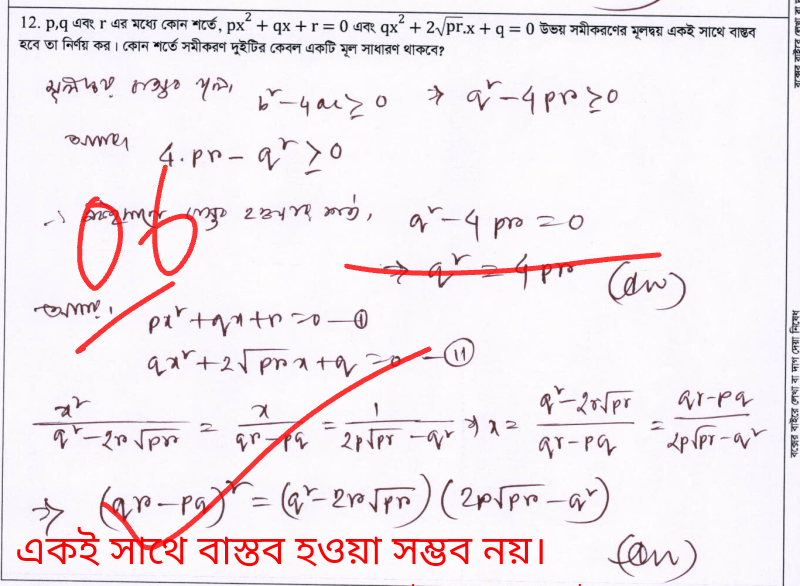 12. p,q এবং r এর মধ্যে কোন শর্তে, px² + qx + r = 0 এবং qx² + 2√pr.x + q = 0 উভয় সমীকরণের মূলদ্বয় একই সাথে বাস্তব
হবে তা নির্ণয় কর। কোন শর্তে সমীকরণ দুইটির কেবল একটি মূল সাধারণ থাকবে?
মূলদ্বয় বাস্তব হলে, b² - 4ac ≥ 0 ⇒ q² - 4pr ≥ 0
আবার, 4.pr - q² ≥ 0
06
∴ বাস্তব হওয়ার শর্ত, q² - 4pr = 0
⇒ q² = 4pr (Ans)
আবার, px² + qx + r = 0 —(i)
qx² + 2√pr x + q = 0 —(ii)
x²/(q² - 2r√pr) = x/(qr - pq) = 1/(2p√pr - q²) ⇒ x = (q² - 2r√pr)/(qr - pq) = (qr - pq)/(2p√pr - q²)
⇒ (qr - pq)² = (q² - 2r√pr)(2p√pr - q²)
একই সাথে বাস্তব হওয়া সম্ভব নয়। (Ans)